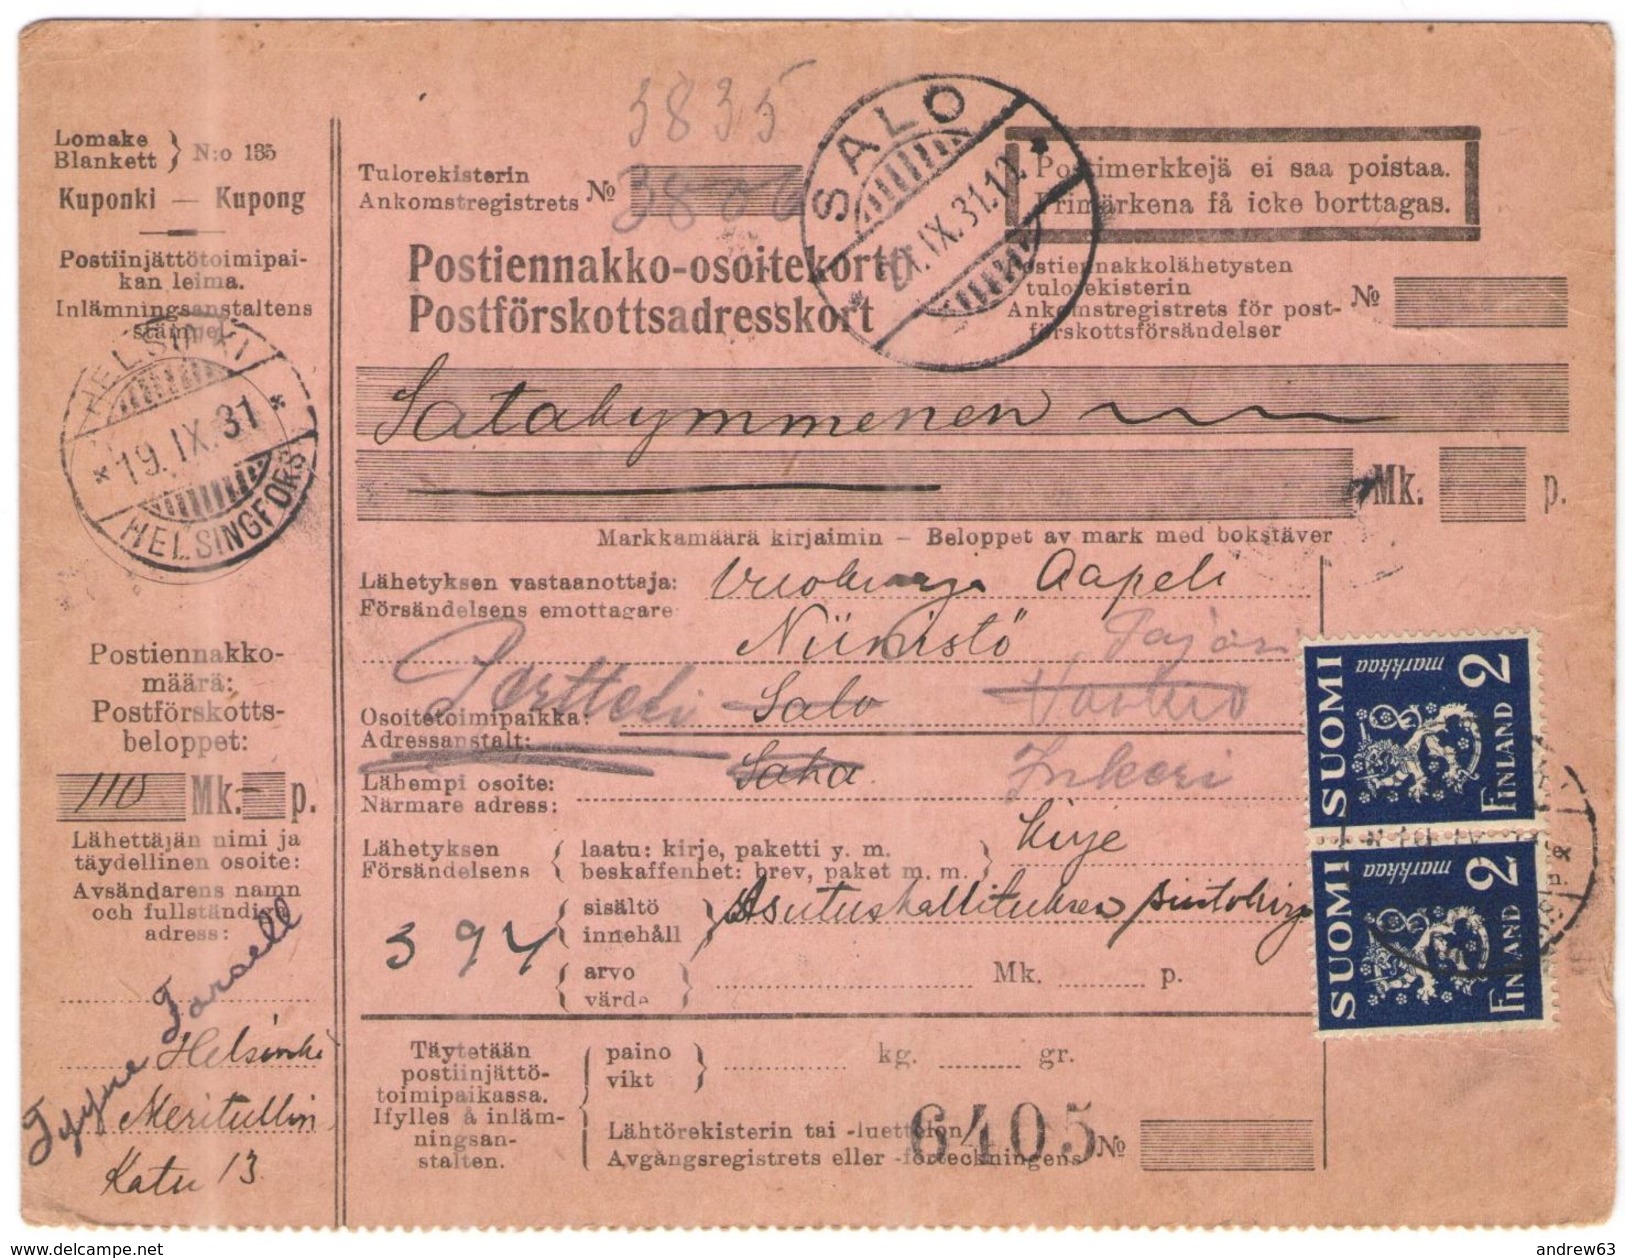 Lomake
Blankett } N:o 135
Kuponki — Kupong
Postiinjättötoimipai-
kan leima.
Inlämningsanstaltens
stämpel
HELSINKI
19.IX.31
HELSINGFORS
Postiennakko-
määrä:
Postförskotts-
beloppet:
110 Mk. — p.
Lähettäjän nimi ja
täydellinen osoite:
Avsändarens namn
och fullständiga
adress:
Tyyne Forsell
Helsinki
Meritullin
Katu 13.
3835
Tulorekisterin
Ankomstregistrets № 3806
SALO
IX.31.12
Postimerkkejä ei saa poistaa.
Frimärkena få icke borttagas.
Postiennakko-osoitekortti
Postförskottsadresskort
Postiennakkolähetysten
tulorekisterin
Ankomstregistrets för post-
förskottsförsändelser №
Satakymmenen
Mk. p.
Markkamäärä kirjaimin — Beloppet av mark med bokstäver
Lähetyksen vastaanottaja: Aapeli
Försändelsens emottagare:
Niinistö
Pertteli Salo
Osoitetoimipaikka:
Adressanstalt:
Lähempi osoite: Inkeri
Närmare adress:
Lähetyksen { laatu: kirje, paketti y. m. } kirje
Försändelsens { beskaffenhet: brev, paket m. m. }
394 { sisältö } Asutushallituksen
innehåll
{ arvo } Mk. p.
värde
Täytetään
postiinjättö-
toimipaikassa.
Ifylles å inläm-
ningsan-
stalten.
{ paino } kg. gr.
vikt
Lähtörekisterin tai -luettelon
Avgångsregistrets eller -förteckningens № 6405
SUOMI 2 markkaa FINLAND
SUOMI 2 markkaa FINLAND
andrew63
delcampe.net